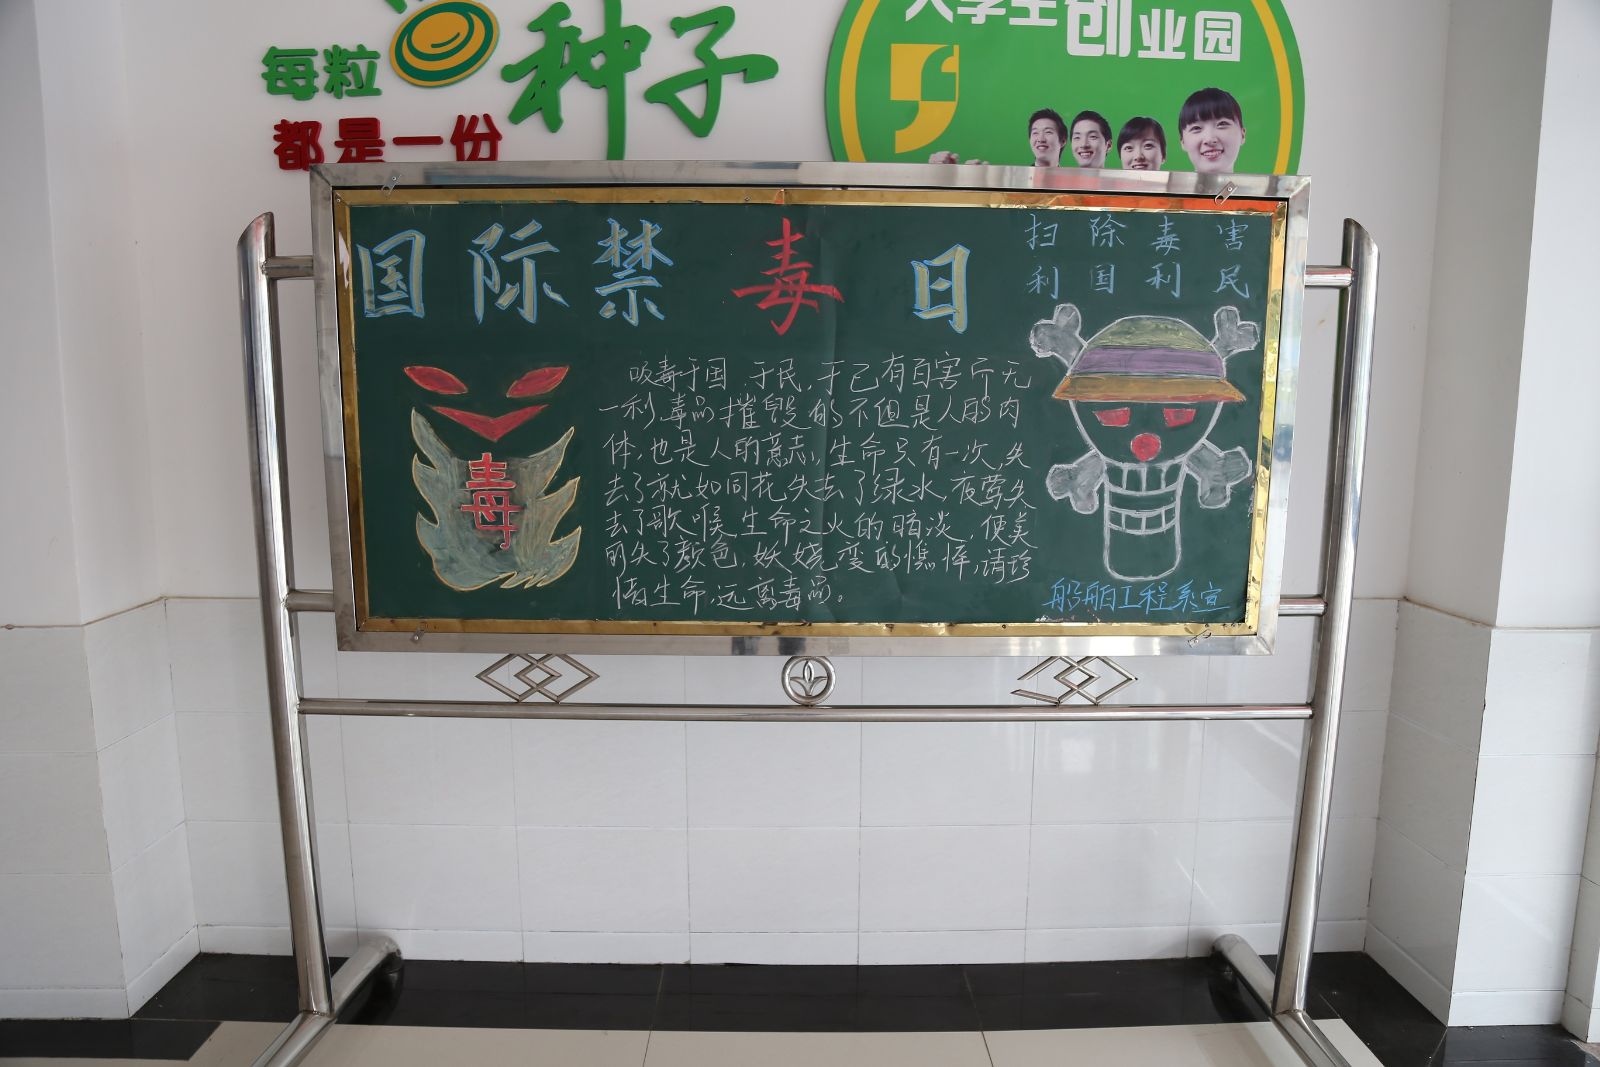 每粒
种子
都是一份
大学生创业园
国际禁毒日
扫除毒害
利国利民
毒
吸毒于国,于民,于己有百害而无
一利,毒品摧毁的不但是人的肉
体,也是人的意志,生命只有一次,失
去了就如同花失去了绿水,夜莺失
去了歌喉,生命之火的暗淡,使美
丽失了颜色,妖娆变的憔悴,请珍
惜生命,远离毒品。
船舶工程系宣